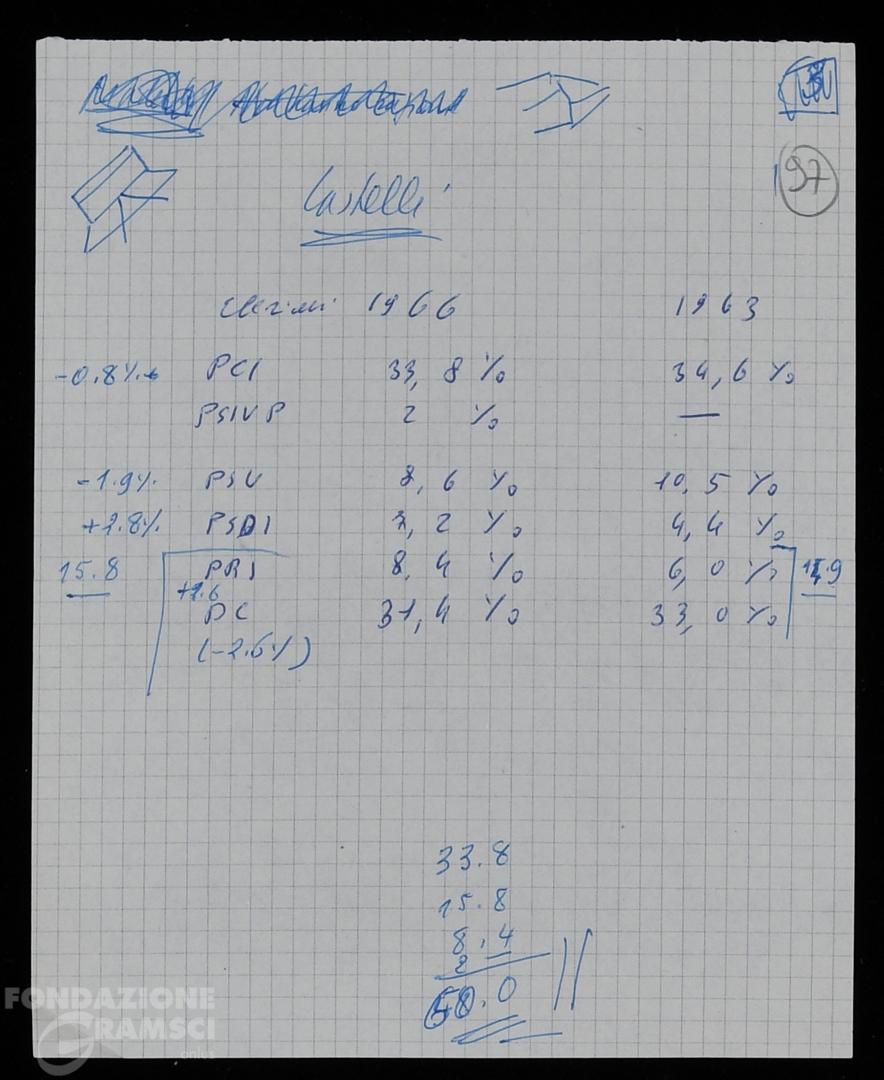 97
Castelli
elezioni 1966 1963
-0.8% PCI 33,8 % 34,6 %
PSIUP 2 % —
-1.9% PSU 8,6 % 10,5 %
+2.8% PSDI 7,2 % 4,4 %
15.8 PRI 8,4 % 6,0 % 14.9
DC 31,4 % 33,0 %
(-2.6%)
33.8
15.8
8.4
2
60.0
FONDAZIONE
GRAMSCI
onlus